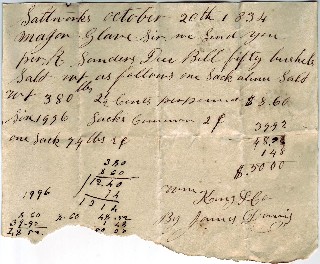 Saltworks October 20th 1834
Major Glave Sir we Send you
per R. Sanders Due Bill fifty bushels
Salt wt as follows one Sack alum Salt
wt 380 lbs 2¼ Cents per pound $ 8.60
1996 Sacks Common 2¢ 39.92
one Sack 74 lbs 2¢ 48.52
148
$ 50.00
380
8 60
1240
74
1314
1996
King & Co
By James
8.60 8.60 48.52
39.92 148
48.52 50 00